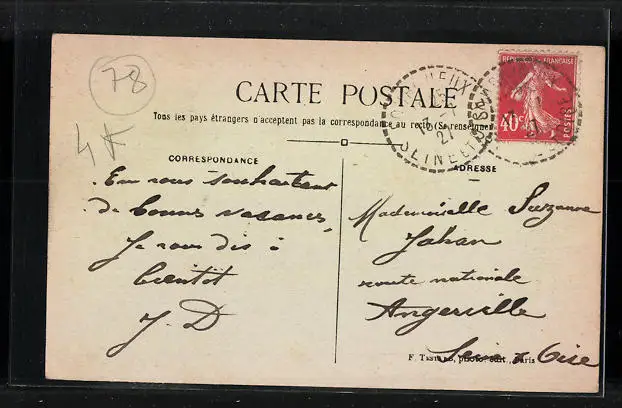 78
4
CARTE POSTALE
Tous les pays étrangers n'acceptent pas la correspondance au recto (Se renseigner
CORRESPONDANCE
ADRESSE
RÉPUBLIQUE FRANÇAISE
40c
POSTES
SEINE ET OISE
En vous souhaitant
de bonnes vacances,
Je vous dis à
bientôt
J. D
Mademoiselle Suzanne
Jahan
route nationale
Angerville
Seine & Oise
photo. édit., Paris